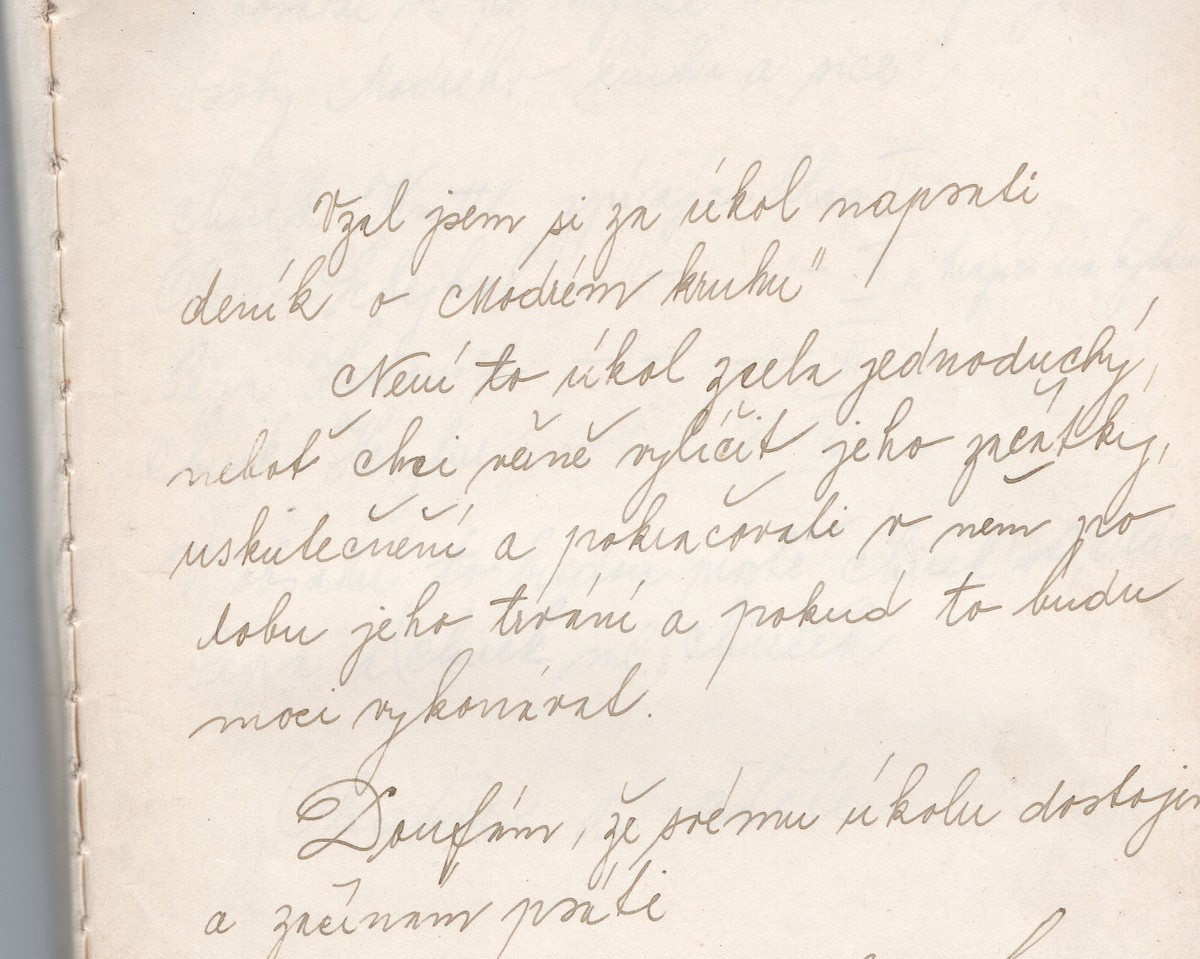 Vzal jsem si za úkol napsati
deník o Modrém kruhu"
Není to úkol zcela jednoduchý,
neboť chci věrně vylíčit jeho začátky,
uskutečnění a pokračovati v něm po
dobu jeho trvání a pokud to budu
moci vykonávat.
Doufám, že svému úkolu dostojím
a začínám psáti